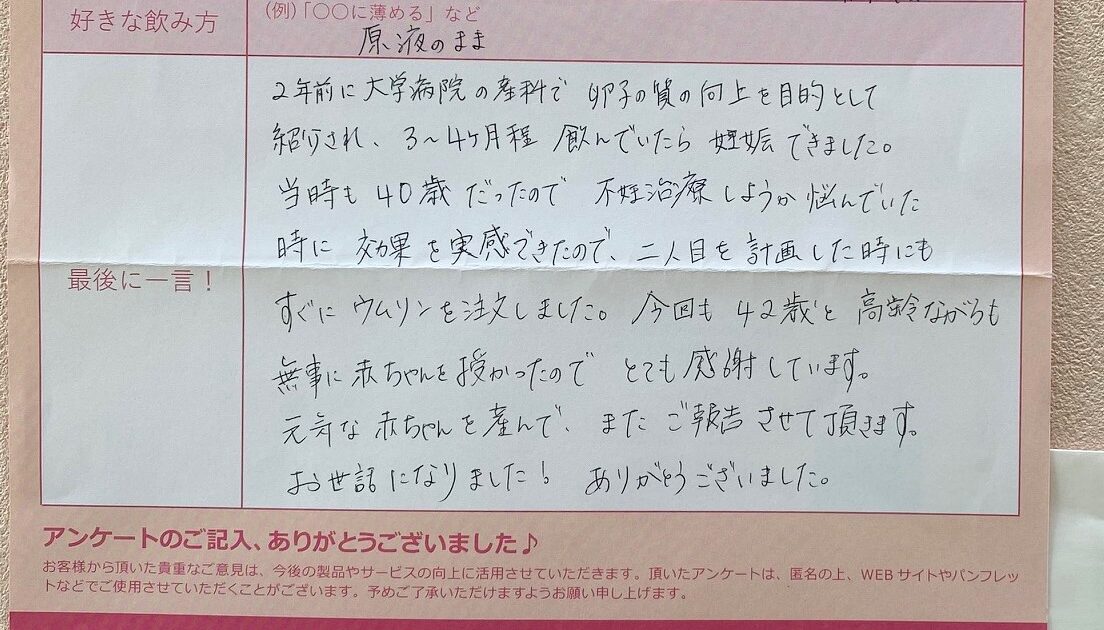 好きな飲み方
(例)「〇〇に薄める」など
原液のまま
2年前に大学病院の産科で 卵子の質の向上を目的として
紹介され、3〜4ヶ月程 飲んでいたら 妊娠できました。
当時も 40歳 だったので 不妊治療しようか悩んでいた
時に 効果を実感できたので、二人目を計画した時にも
最後に一言!
すぐに ウムリンを注文しました。今回も 42歳と 高齢ながらも
無事に赤ちゃんを授かったので とても感謝しています。
元気な 赤ちゃんを産んで、またご報告させて頂きます。
お世話になりました! ありがとうございました。
アンケートのご記入、ありがとうございました♪
お客様から頂いた貴重なご意見は、今後の製品やサービスの向上に活用させていただきます。頂いたアンケートは、匿名の上、WEBサイトやパンフレッ
トなどでご使用させていただくことがございます。予めご了承いただけますようお願い申し上げます。